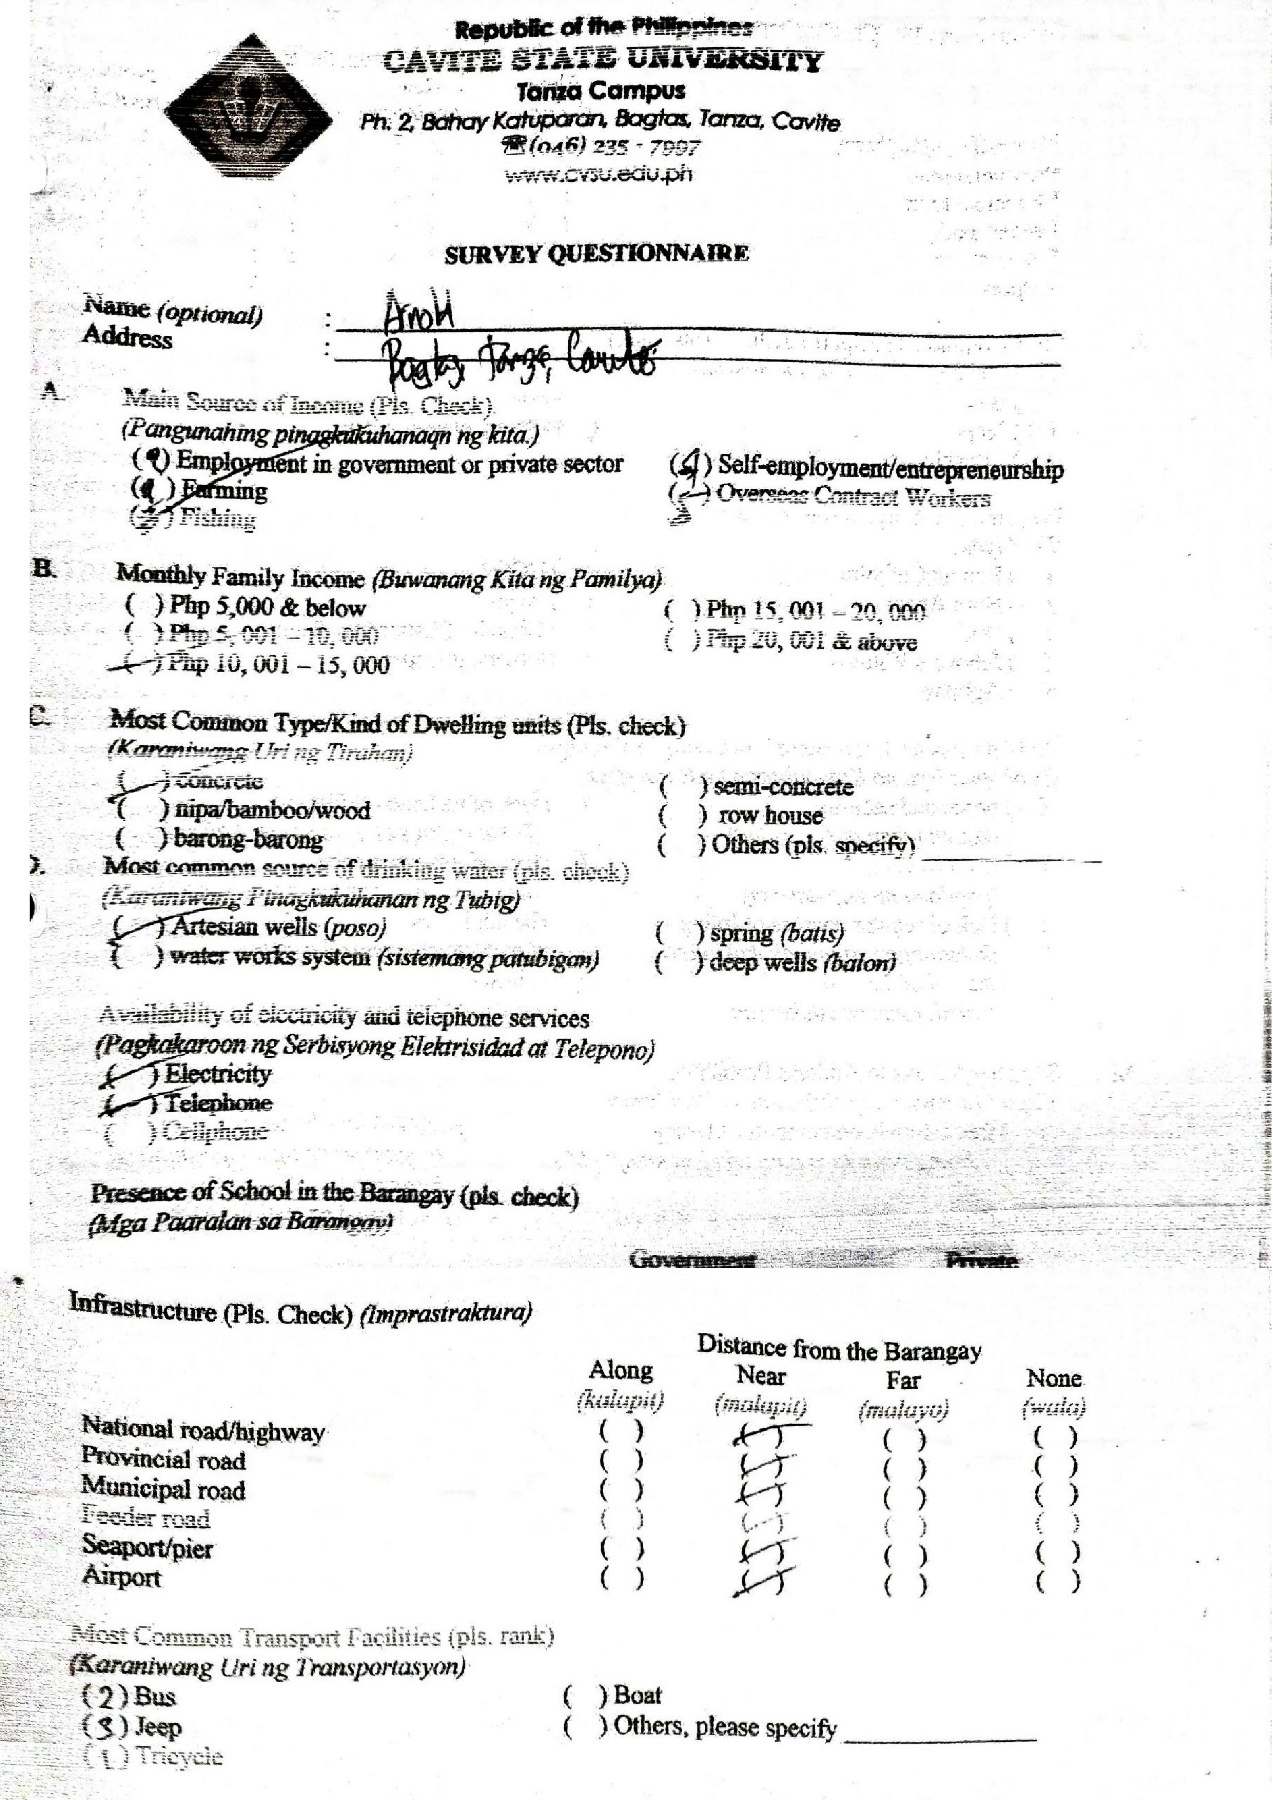 Republic of the Philippines
CAVITE STATE UNIVERSITY
Tanza Campus
Ph. 2, Bahay Katuparan, Bagtas, Tanza, Cavite
☎(046) 235 - 7997
www.cvsu.edu.ph
SURVEY QUESTIONNAIRE
Name (optional) :
Address : Bagtas, Tanza, Cavite
A. Main Source of Income (Pls. Check)
(Pangunahing pinagkukuhanaqn ng kita.)
( ) Employment in government or private sector (4) Self-employment/entrepreneurship
( ) Farming ( ) Overseas Contract Workers
( ) Fishing
B. Monthly Family Income (Buwanang Kita ng Pamilya)
( ) Php 5,000 & below ( ) Php 15, 001 – 20, 000
( ) Php 5, 001 – 10, 000 ( ) Php 20, 001 & above
(✓) Php 10, 001 – 15, 000
C. Most Common Type/Kind of Dwelling units (Pls. check)
(Karaniwang Uri ng Tirahan)
(✓) concrete ( ) semi-concrete
( ) nipa/bamboo/wood ( ) row house
( ) barong-barong ( ) Others (pls. specify)
D. Most common source of drinking water (pls. check)
(Karaniwang Pinagkukuhanan ng Tubig)
(✓) Artesian wells (poso) ( ) spring (batis)
( ) water works system (sistemang patubigan) ( ) deep wells (balon)
Availability of electricity and telephone services
(Pagkakaroon ng Serbisyong Elektrisidad at Telepono)
(✓) Electricity
(✓) Telephone
( ) Cellphone
Presence of School in the Barangay (pls. check)
(Mga Paaralan sa Barangay)
Government Private
Infrastructure (Pls. Check) (Imprastraktura)
Distance from the Barangay
Along Near Far None
(kalapit) (malapit) (malayo) (wala)
National road/highway ( ) (✓) ( ) ( )
Provincial road ( ) (✓) ( ) ( )
Municipal road ( ) (✓) ( ) ( )
Feeder road ( ) (✓) ( ) ( )
Seaport/pier ( ) (✓) ( ) ( )
Airport ( ) (✓) ( ) ( )
Most Common Transport Facilities (pls. rank)
(Karaniwang Uri ng Transportasyon)
(2) Bus ( ) Boat
(3) Jeep ( ) Others, please specify
(1) Tricycle